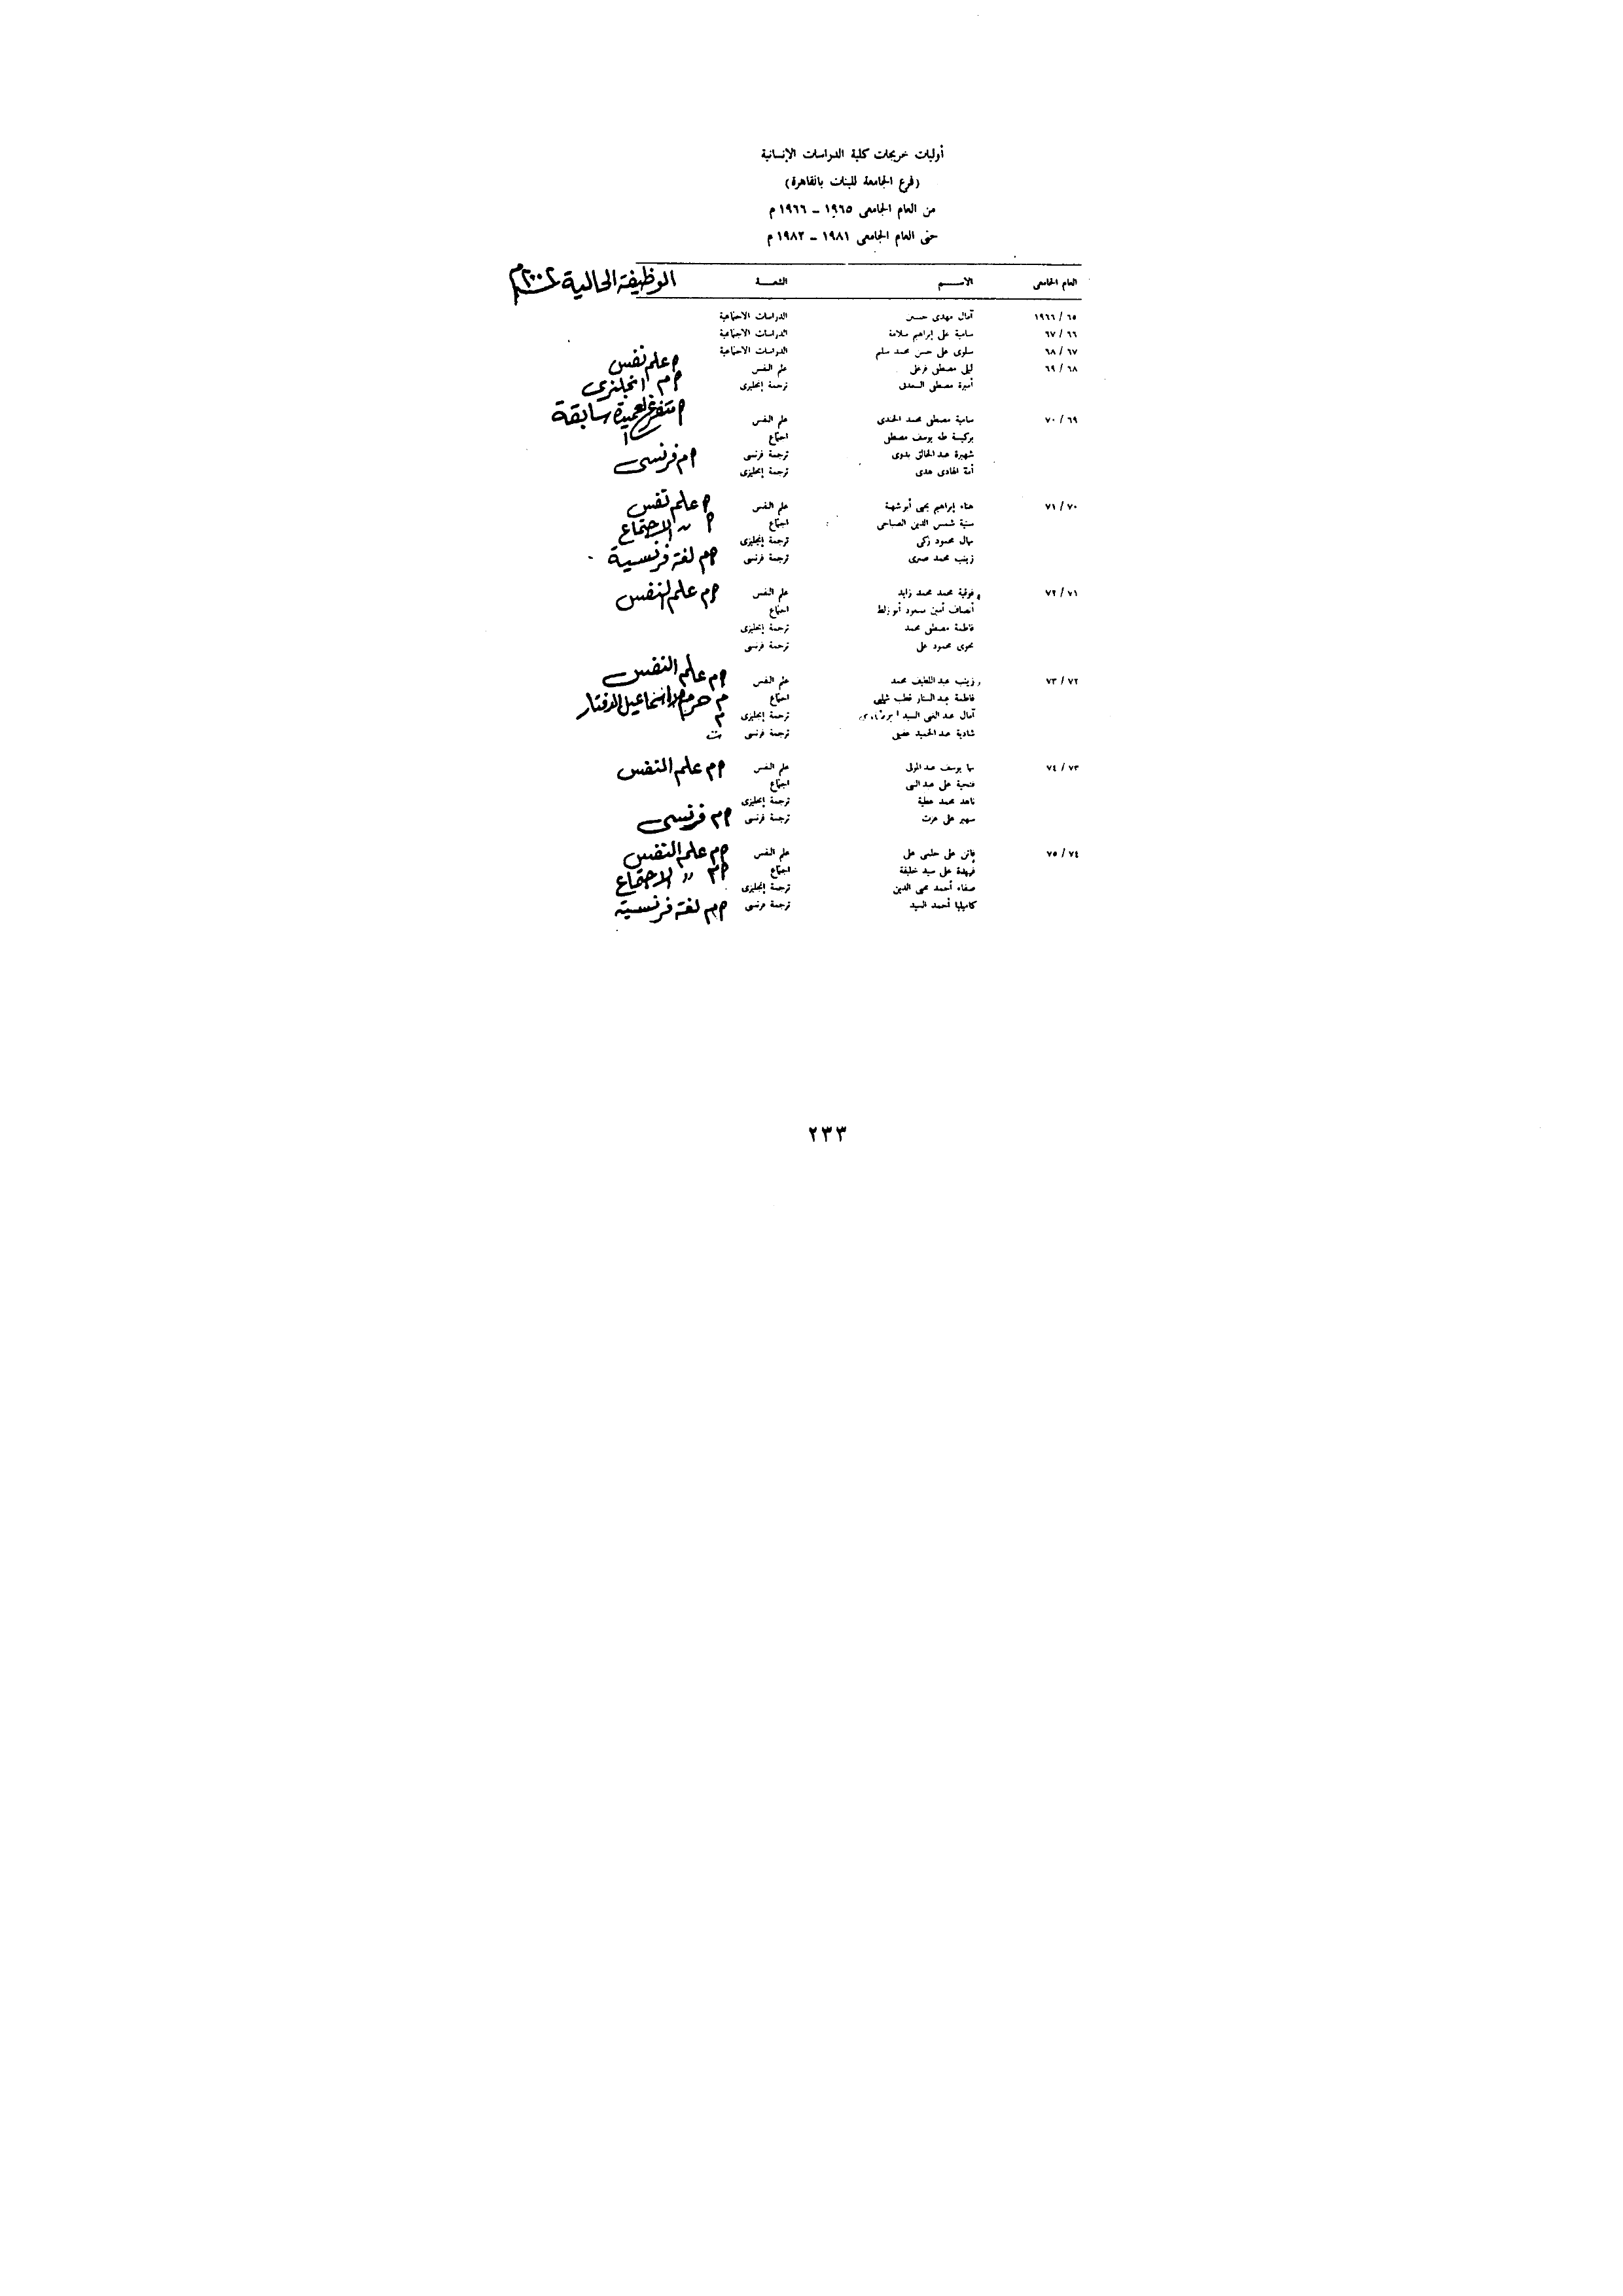 أوليات خريجات كلية الدراسات الإنسانية
(فرع الجامعة للبنات بالقاهرة)
من العام الجامعى ١٩٦٥ – ١٩٦٦ م
حتى العام الجامعى ١٩٨١ – ١٩٨٢ م
العام الجامعى الاســـم الشعبـة الوظيفة الحالية ٢٠٠٢م
٦٥ / ١٩٦٦ آمال مهدى حسين الدراسات الاجتماعية
٦٦ / ٦٧ سامية على إبراهيم سلامة الدراسات الاجتماعية
٦٧ / ٦٨ سلوى على حسن محمد سليم الدراسات الاجتماعية
٦٨ / ٦٩ ليلى مصطفى فرغلى علم النفس أ علم نفس
أميرة مصطفى السعدنى ترجمة إنجليزى أ م انجليزى
٦٩ / ٧٠ سامية مصطفى محمد الجندى علم النفس أ متفرغ عميدة سابقة
بركيسة طه يوسف مصطفى اجتماع
شهيرة عبد الخالق بدوى ترجمة فرنسى أ م فرنسى
أمة الهادى هدى ترجمة إنجليزى
٧٠ / ٧١ هناء إبراهيم يحيى أبو شهبة علم النفس أ علم نفس
سنية شمس الدين الصباحى اجتماع أ " الاجتماع
نهال محمود زكى ترجمة إنجليزى
زينب محمد صبرى ترجمة فرنسى أ م لغة فرنسية
٧١ / ٧٢ فوقية محمد محمد زايد علم النفس أ م علم النفس
أنصاف أمين مسعود أبو زلط اجتماع
فاطمة مصطفى محمد ترجمة إنجليزى
نجوى محمود على ترجمة فرنسى
٧٢ / ٧٣ زينب عبد اللطيف محمد علم النفس أ م علم النفس
فاطمة عبد الستار قطب شلبى اجتماع م حرم اسماعيل الدفتار
آمال عبد الغنى السيد ترجمة إنجليزى م
شادية عبد الحميد عفيفى ترجمة فرنسى
٧٣ / ٧٤ مها يوسف عبد المولى علم النفس أ م علم النفس
فتحية على عبد النبى اجتماع
ناهد محمد عطية ترجمة إنجليزى
سهير على عزت ترجمة فرنسى أ م فرنسى
٧٤ / ٧٥ فاتن على حلمى على علم النفس أ م علم النفس
فريدة على سيد خليفة اجتماع أ م " الاجتماع
صفاء أحمد محيى الدين ترجمة إنجليزى
كاميليا أحمد السيد ترجمة فرنسى أ م لغة فرنسية
٢٣٣